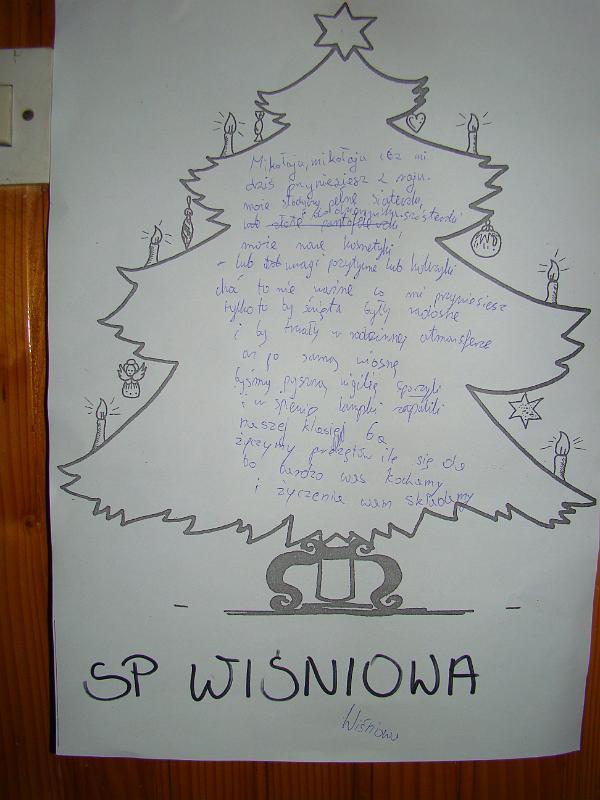 Mikołaju, mikołaju cóż mi
dziś przyniesiesz z raju.
może słodyczy pełne siateczki,
lub siosteczki
może nowe kosmetyki
- lub uwagi pozytywne lub kolczyki
choć to nie ważne co mi przyniesiesz
tylko to by święta były radosne
i by trwały w rodzinnej atmosferze
aż po samą wiosnę
byśmy pyszną wigilię spożyli
i w lampki zapalili
naszej klasie 6a
życzymy prezętów ile się da
bo bardzo was kochamy
i życzenia wam składamy
SP WIŚNIOWA
Wiśniowa